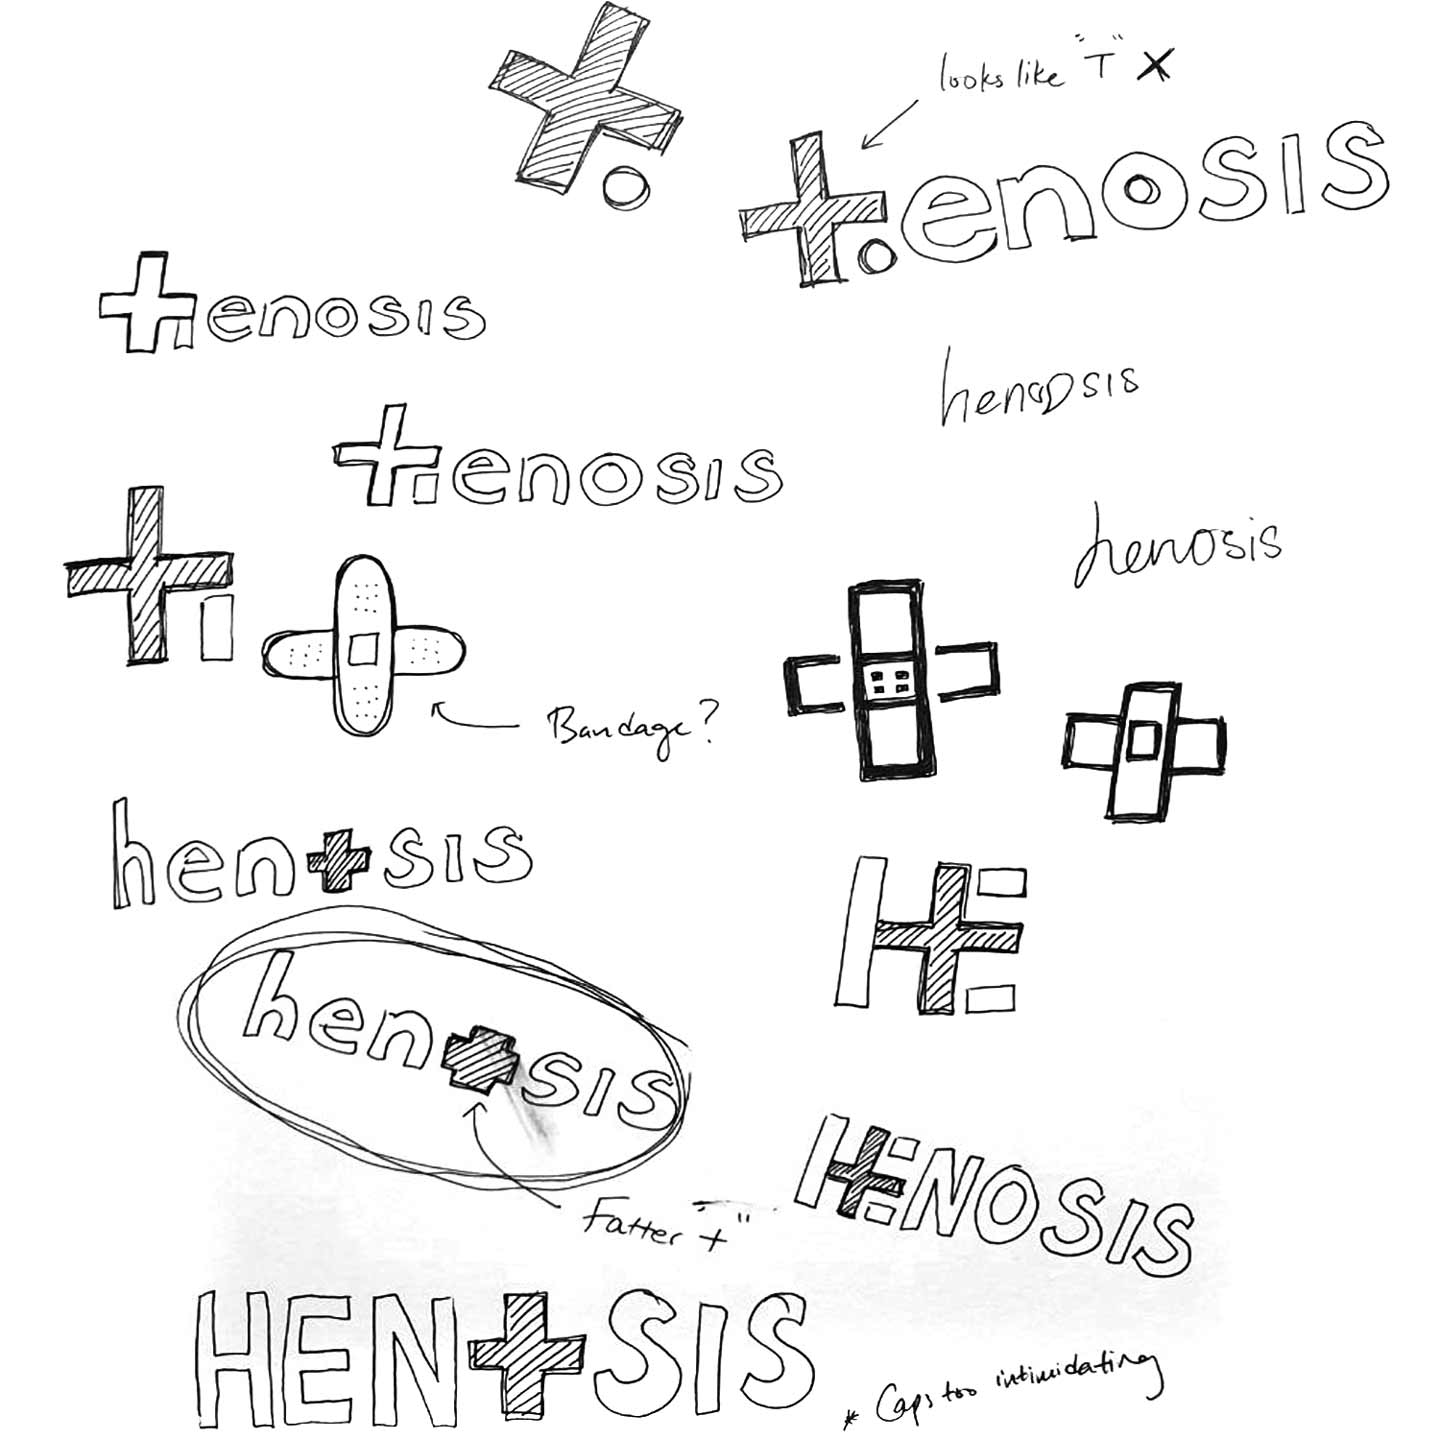 looks like "T" X
+.enosis
+enosis
henosis
+.enosis
henosis
Bandage?
hen+sis
hen+sis
Fatter "+"
HENOSIS
HEN+SIS
* Caps too intimidating